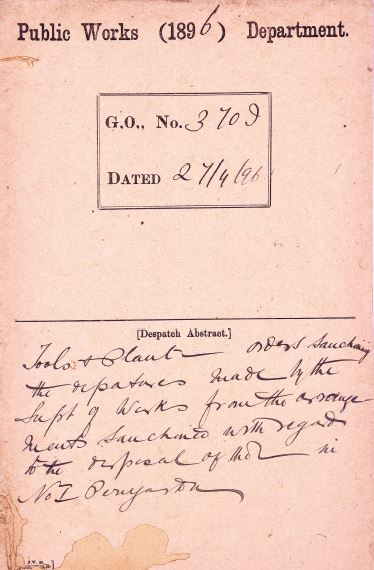 Public Works (1896) Department.
G.O., No. 370 I
DATED 27/4/96
[Despatch Abstract.]
Tools & Plant – orders sanctioning
the depatures made by the
Supt of Works from the arrange-
ments sanctioned with regard
to the disposal of the in
No I